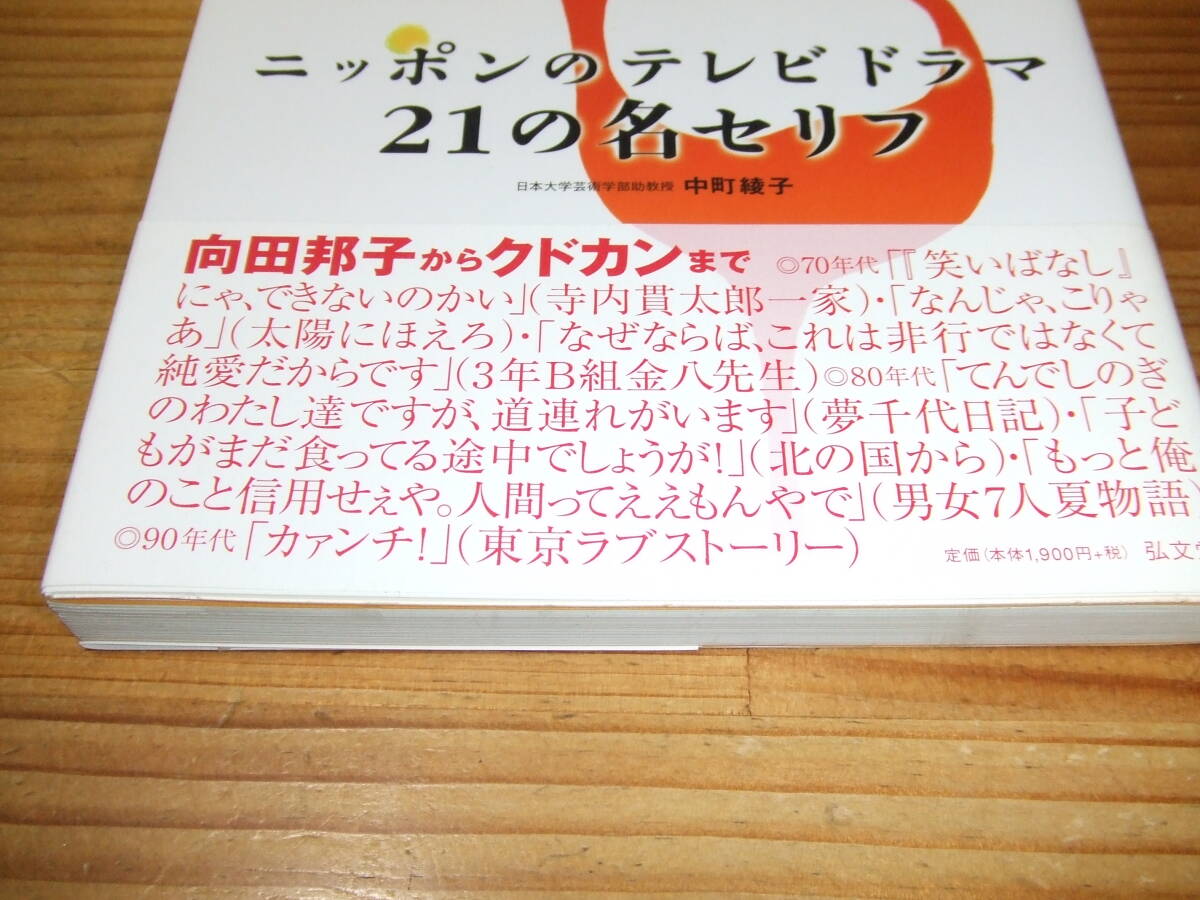 ニッポンのテレビドラマ
21の名セリフ
日本大学芸術学部助教授 中町綾子
向田邦子からクドカンまで ◎70年代「『笑いばなし』
にゃ、できないのかい」(寺内貫太郎一家)・「なんじゃ、こりゃ
あ」(太陽にほえろ)・「なぜならば、これは非行ではなくて
純愛だからです」(3年B組金八先生)◎80年代「てんでしのぎ
のわたし達ですが、道連れがいます」(夢千代日記)・「子ど
もがまだ食ってる途中でしょうが!」(北の国から)・「もっと俺
のこと信用せぇや。人間ってええもんやで」(男女7人夏物語)
◎90年代「カァンチ!」(東京ラブストーリー)
定価(本体1,900円+税) 弘文